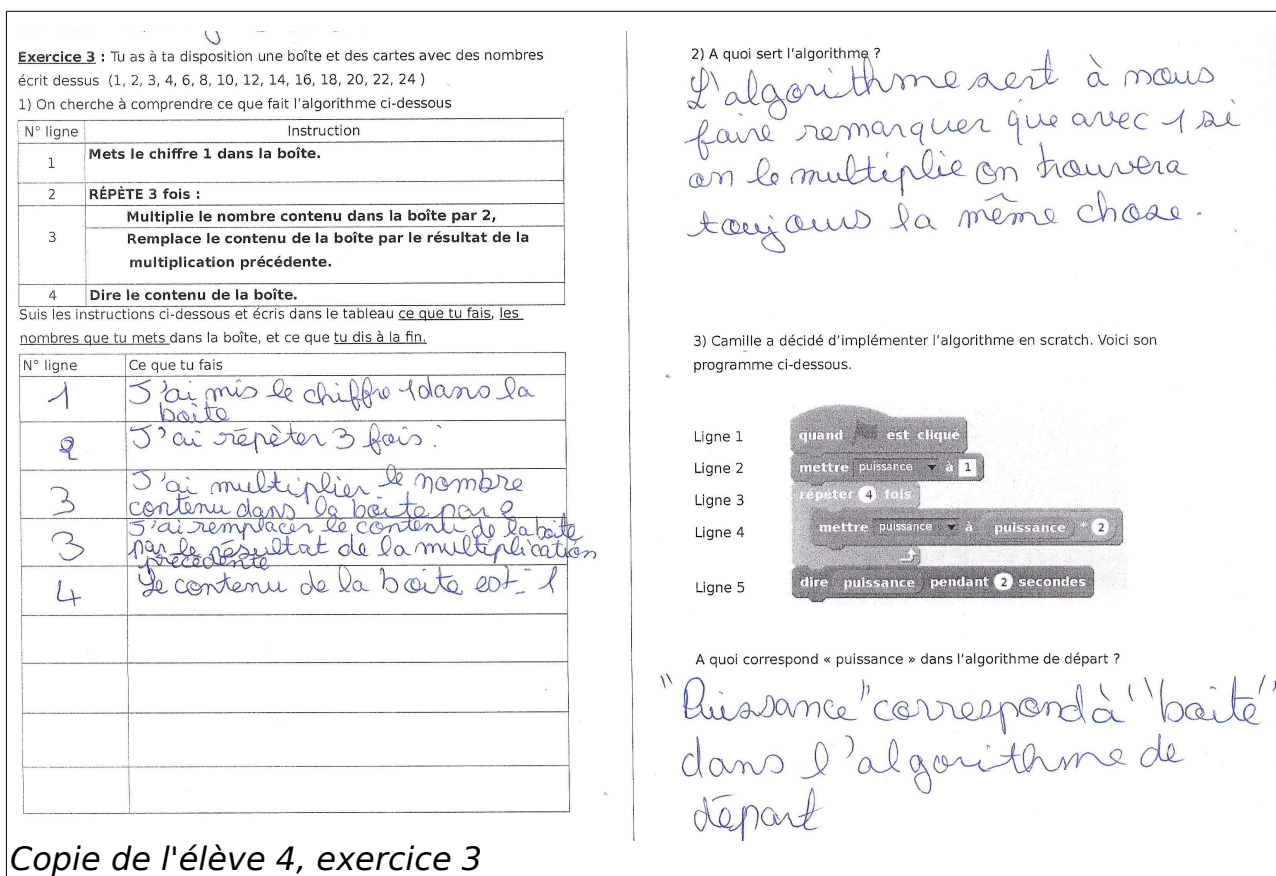 Exercice 3 : Tu as à ta disposition une boîte et des cartes avec des nombres
écrit dessus (1, 2, 3, 4, 6, 8, 10, 12, 14, 16, 18, 20, 22, 24 )
1) On cherche à comprendre ce que fait l'algorithme ci-dessous
N° ligne Instruction
1 Mets le chiffre 1 dans la boîte.
2 RÉPÈTE 3 fois :
Multiplie le nombre contenu dans la boîte par 2,
3 Remplace le contenu de la boîte par le résultat de la
multiplication précédente.
4 Dire le contenu de la boîte.
Suis les instructions ci-dessous et écris dans le tableau ce que tu fais, les
nombres que tu mets dans la boîte, et ce que tu dis à la fin.
N° ligne Ce que tu fais
1 J'ai mis le chiffre 1 dans la
boite
2 J'ai répèter 3 fois :
3 J'ai multiplier le nombre
contenu dans la boite par 2
3 J'ai remplacer le contenu de la boite
par le résultat de la multiplication
précédente
4 Le contenu de la boite est 1
2) A quoi sert l'algorithme ?
L'algorithme sert à nous
faire remarquer que avec 1 si
on le multiplie on trouvera
toujours la même chose.
3) Camille a décidé d'implémenter l'algorithme en scratch. Voici son
programme ci-dessous.
Ligne 1 quand est cliqué
Ligne 2 mettre puissance à 1
Ligne 3 répéter 4 fois
Ligne 4 mettre puissance à puissance * 2
Ligne 5 dire puissance pendant 2 secondes
A quoi correspond « puissance » dans l'algorithme de départ ?
"Puissance" correspond à "boite"
dans l'algorithme de
départ
Copie de l'élève 4, exercice 3